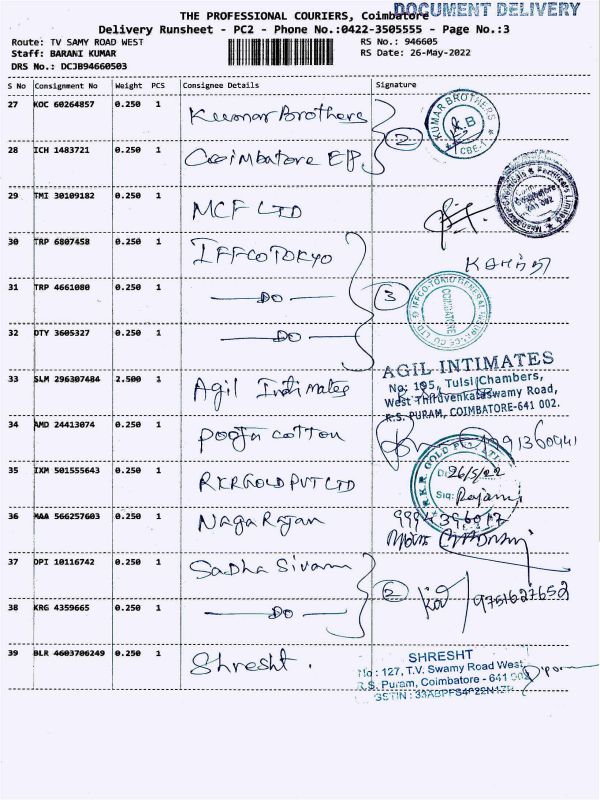 DOCUMENT DELIVERY
THE PROFESSIONAL COURIERS, Coimbatore
Delivery Runsheet - PC2 - Phone No.:0422-3505555 - Page No.:3
Route: TV SAMY ROAD WEST RS No.: 946605
Staff: BARANI KUMAR RS Date: 26-May-2022
DRS No.: DCJB94660503
S No Consignment No Weight PCS Consignee Details Signature
27 KOC 60264857 0.250 1 Kumar Brothers
KUMAR BROTHERS K.B CBE-1
28 ICH 1483721 0.250 1 Coimbatore 2
29 TMI 30109182 0.250 1 MCF LTD
Coimbatore 641 002
30 TRP 6807458 0.250 1 IFFCO TOKYO
31 TRP 4661080 0.250 1 DO 3
IFFCO-TOKIO GENERAL INSURANCE CO. LTD. COIMBATORE
32 DTY 3605327 0.250 1 DO
33 SLM 296307484 2.500 1 Agil Intimates
AGIL INTIMATES
No: 195, Tulsi Chambers,
West Thiruvenkataswamy Road,
R.S. PURAM, COIMBATORE-641 002.
34 AMD 24413074 0.250 1 Pooja cotton
35 IXM 501555643 0.250 1 RKR GOLD PVT LTD
R.K.R GOLD PVT. LTD.
Dt: 26/5/22
Sig: Rajani
36 MAA 566257603 0.250 1 Naga Rajan
37 DPI 10116742 0.250 1 Sadha Sivam
38 KRG 4359665 0.250 1 DO 2 9751627652
39 BLR 4603706249 0.250 1 Shresht.
SHRESHT
No : 127, T.V. Swamy Road West,
R.S. Puram, Coimbatore - 641 002